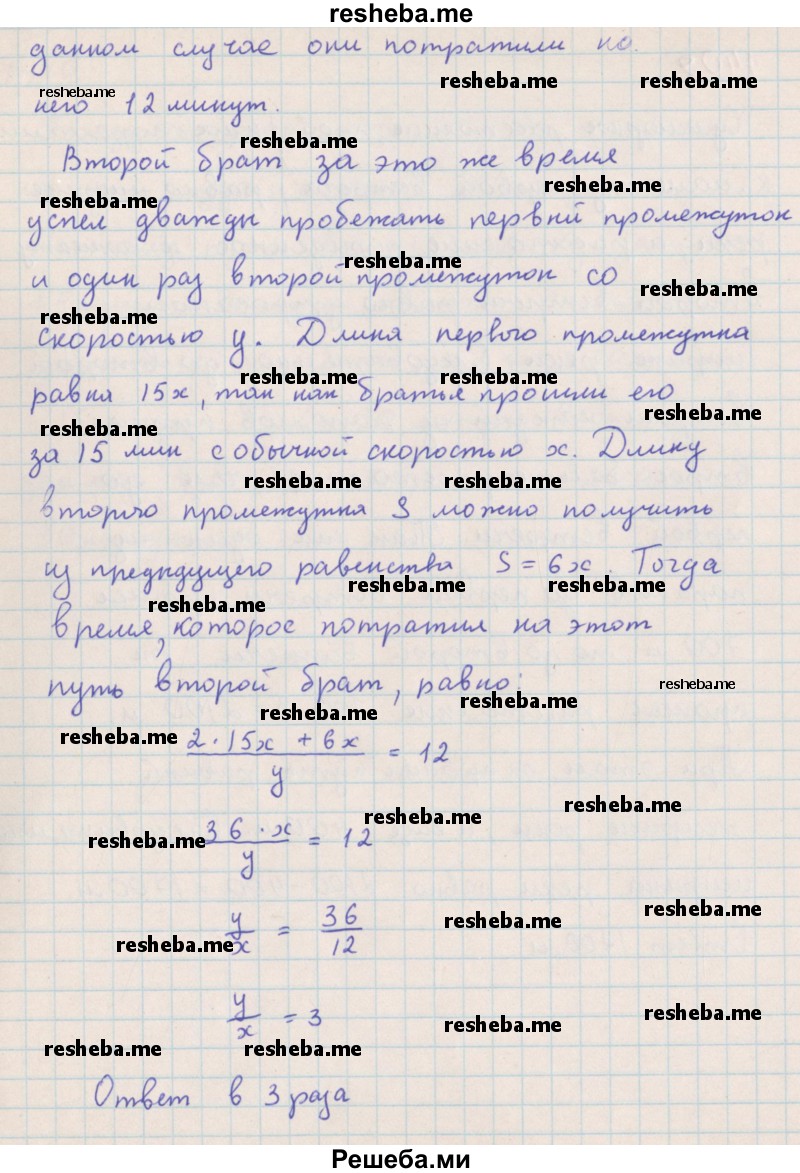 resheba.me
данном случае они потратили на
resheba.me resheba.me resheba.me
него 12 минут.
resheba.me
Второй брат за это же время
resheba.me resheba.me
успел дважды пробежать первый промежуток
resheba.me
и один раз второй промежуток со
resheba.me resheba.me
скоростью y. Длина первого промежутка
resheba.me resheba.me
равна 15x, так как братья прошли его
resheba.me resheba.me
за 15 мин с обычной скоростью x. Длину
resheba.me resheba.me
второго промежутка S можно получить
из предыдущего равенства S = 6x. Тогда
resheba.me resheba.me
resheba.me
время, которое потратил на этот
путь второй брат, равно:
resheba.me resheba.me
resheba.me resheba.me
2 · 15x + 6x / y = 12
resheba.me resheba.me
resheba.me
36 · x / y = 12
resheba.me resheba.me
y / x = 36 / 12
resheba.me
y / x = 3
resheba.me resheba.me
resheba.me resheba.me
Ответ в 3 раза
Решеба.ми